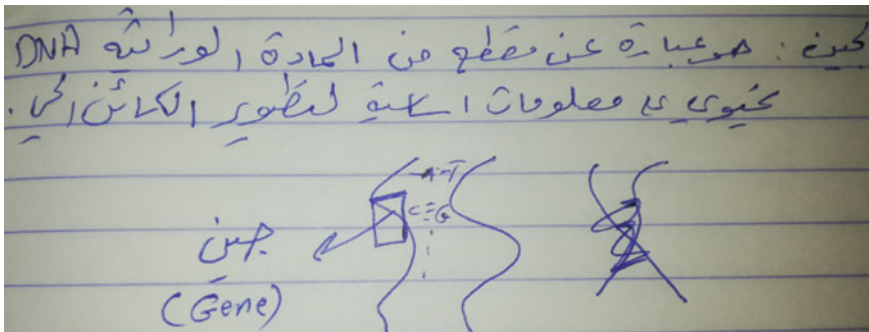 لجين : هو عبارة عن مقطع من المادة الوراثية DNA
يحتوي على معلومات اساسية لتطوير الكائن الحي .
A-T
C≡G
جين
(Gene)